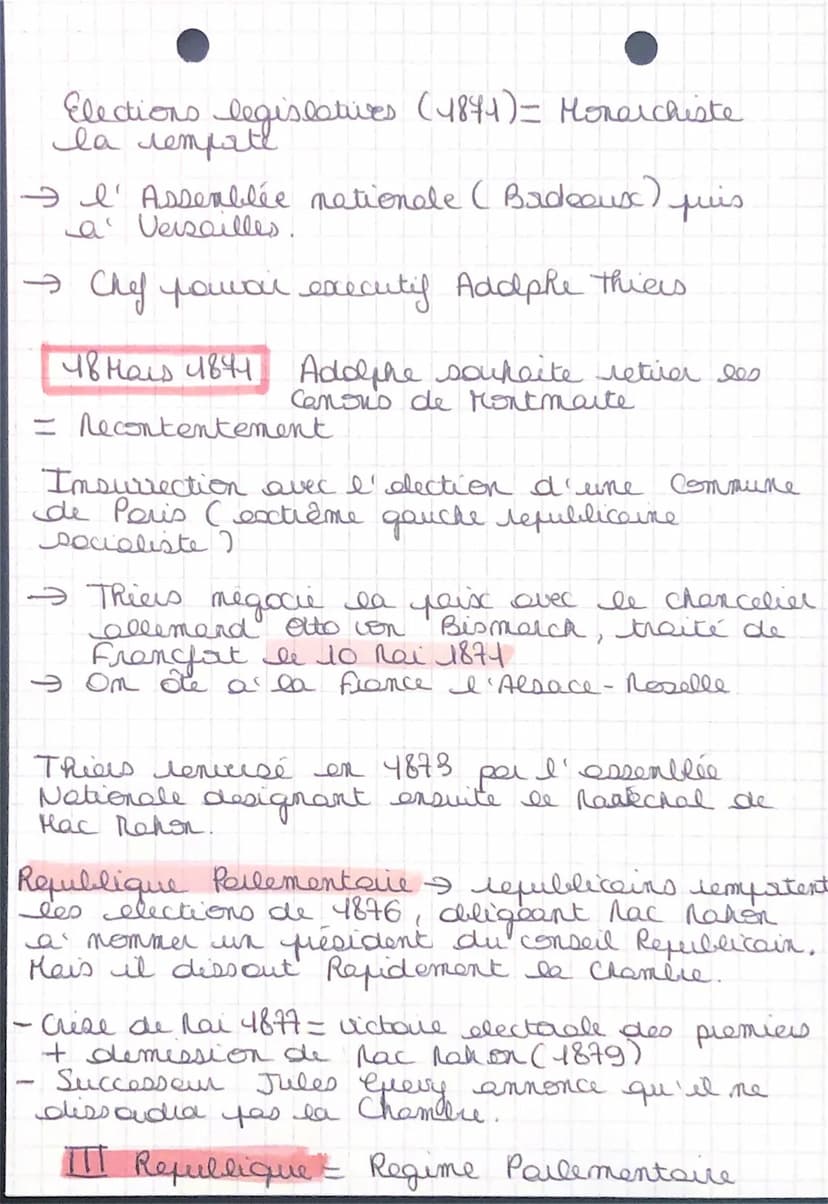 Elections legislatives (1871)= Monarchiste
la remporte
→ l'Assemblée nationale (Bordeaux) puis
a' Versailles.
→ Chef pouvoir executif Adolphe Thiers
18 Mars 1871 Adolphe souhaite retirer les
Canons de Montmarte
= Mecontentement
Insurrection avec l'election d'une Commune
de Paris (extrême gauche republicaine
socialiste)
→ Thiers négocie la paix avec le chancelier
allemand Otto von Bismarck, traité de
Francfort le 10 Mai 1871
→ On ôte a' la France l'Alsace-Moselle
Thiers renversé en 1873 par l'assemblée
Nationale designant ensuite le Maréchal de
Mac Mahon.
Republique Parlementaire → republicains remportent
les elections de 1876, obligeant Mac Mahon
a' nommer un président du conseil Republicain.
Mais il dissout Rapidement la Chambre.
- Crise de Mai 1877= victoire electorale des premiers
+ demission de Mac Mahon (1879)
- Successeur Jules Grevy annonce qu'il ne
dissoudra pas la Chambre.
III Republique = Regime Parlementaire